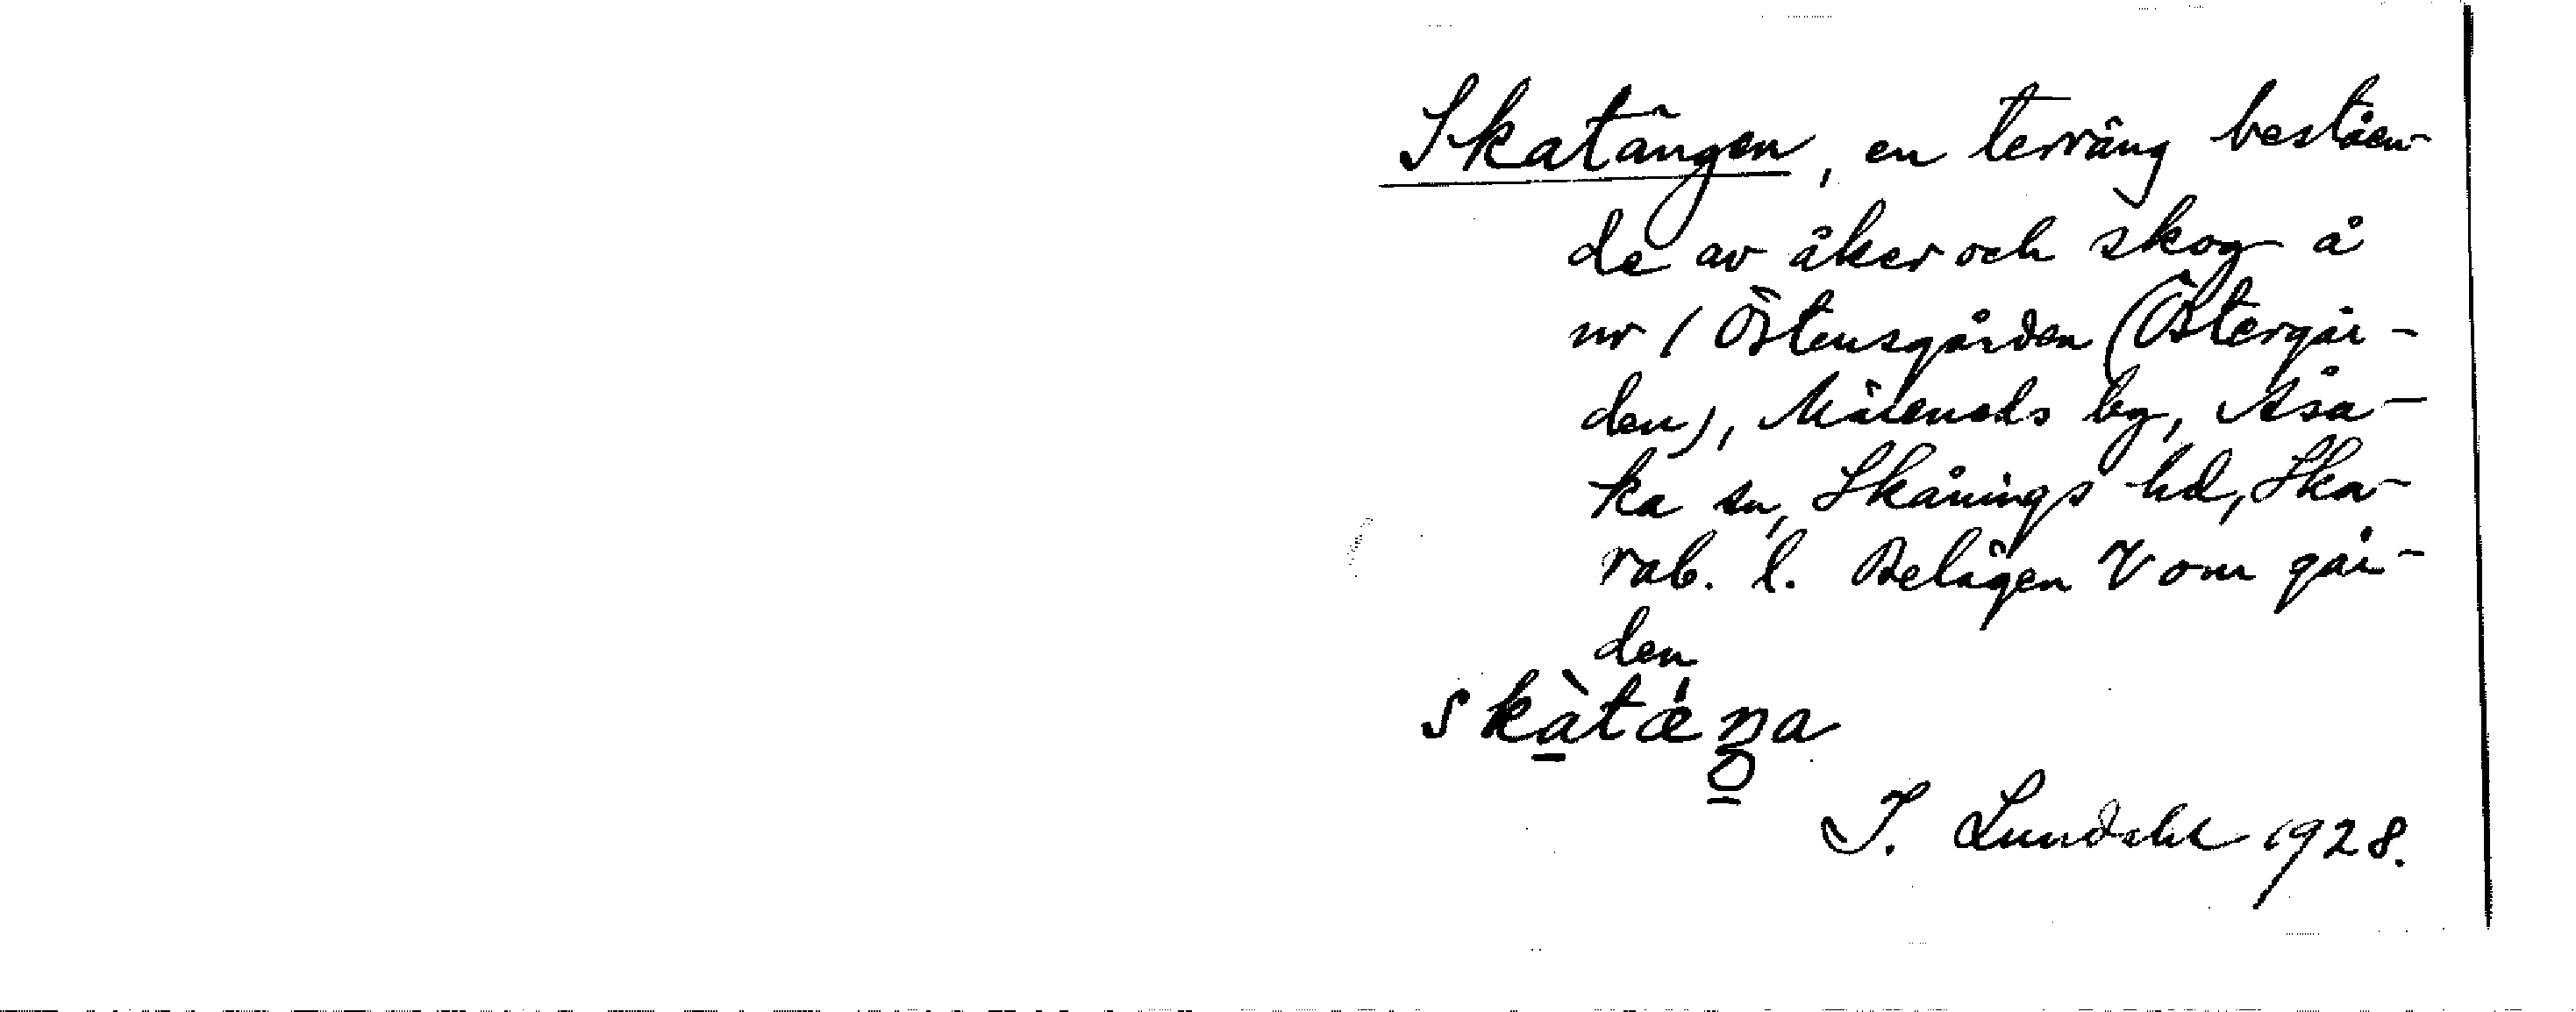 Skatängen, en terräng beståen-
de av åker och skog å
nr 1 Östensgården (Östergår-
den), Märeneds by, Åsa-
ka sn, Skånings hd, Ska-
rab. l. Belägen V om går-
den
skàtǽŋa
I. Lundahl 1928.